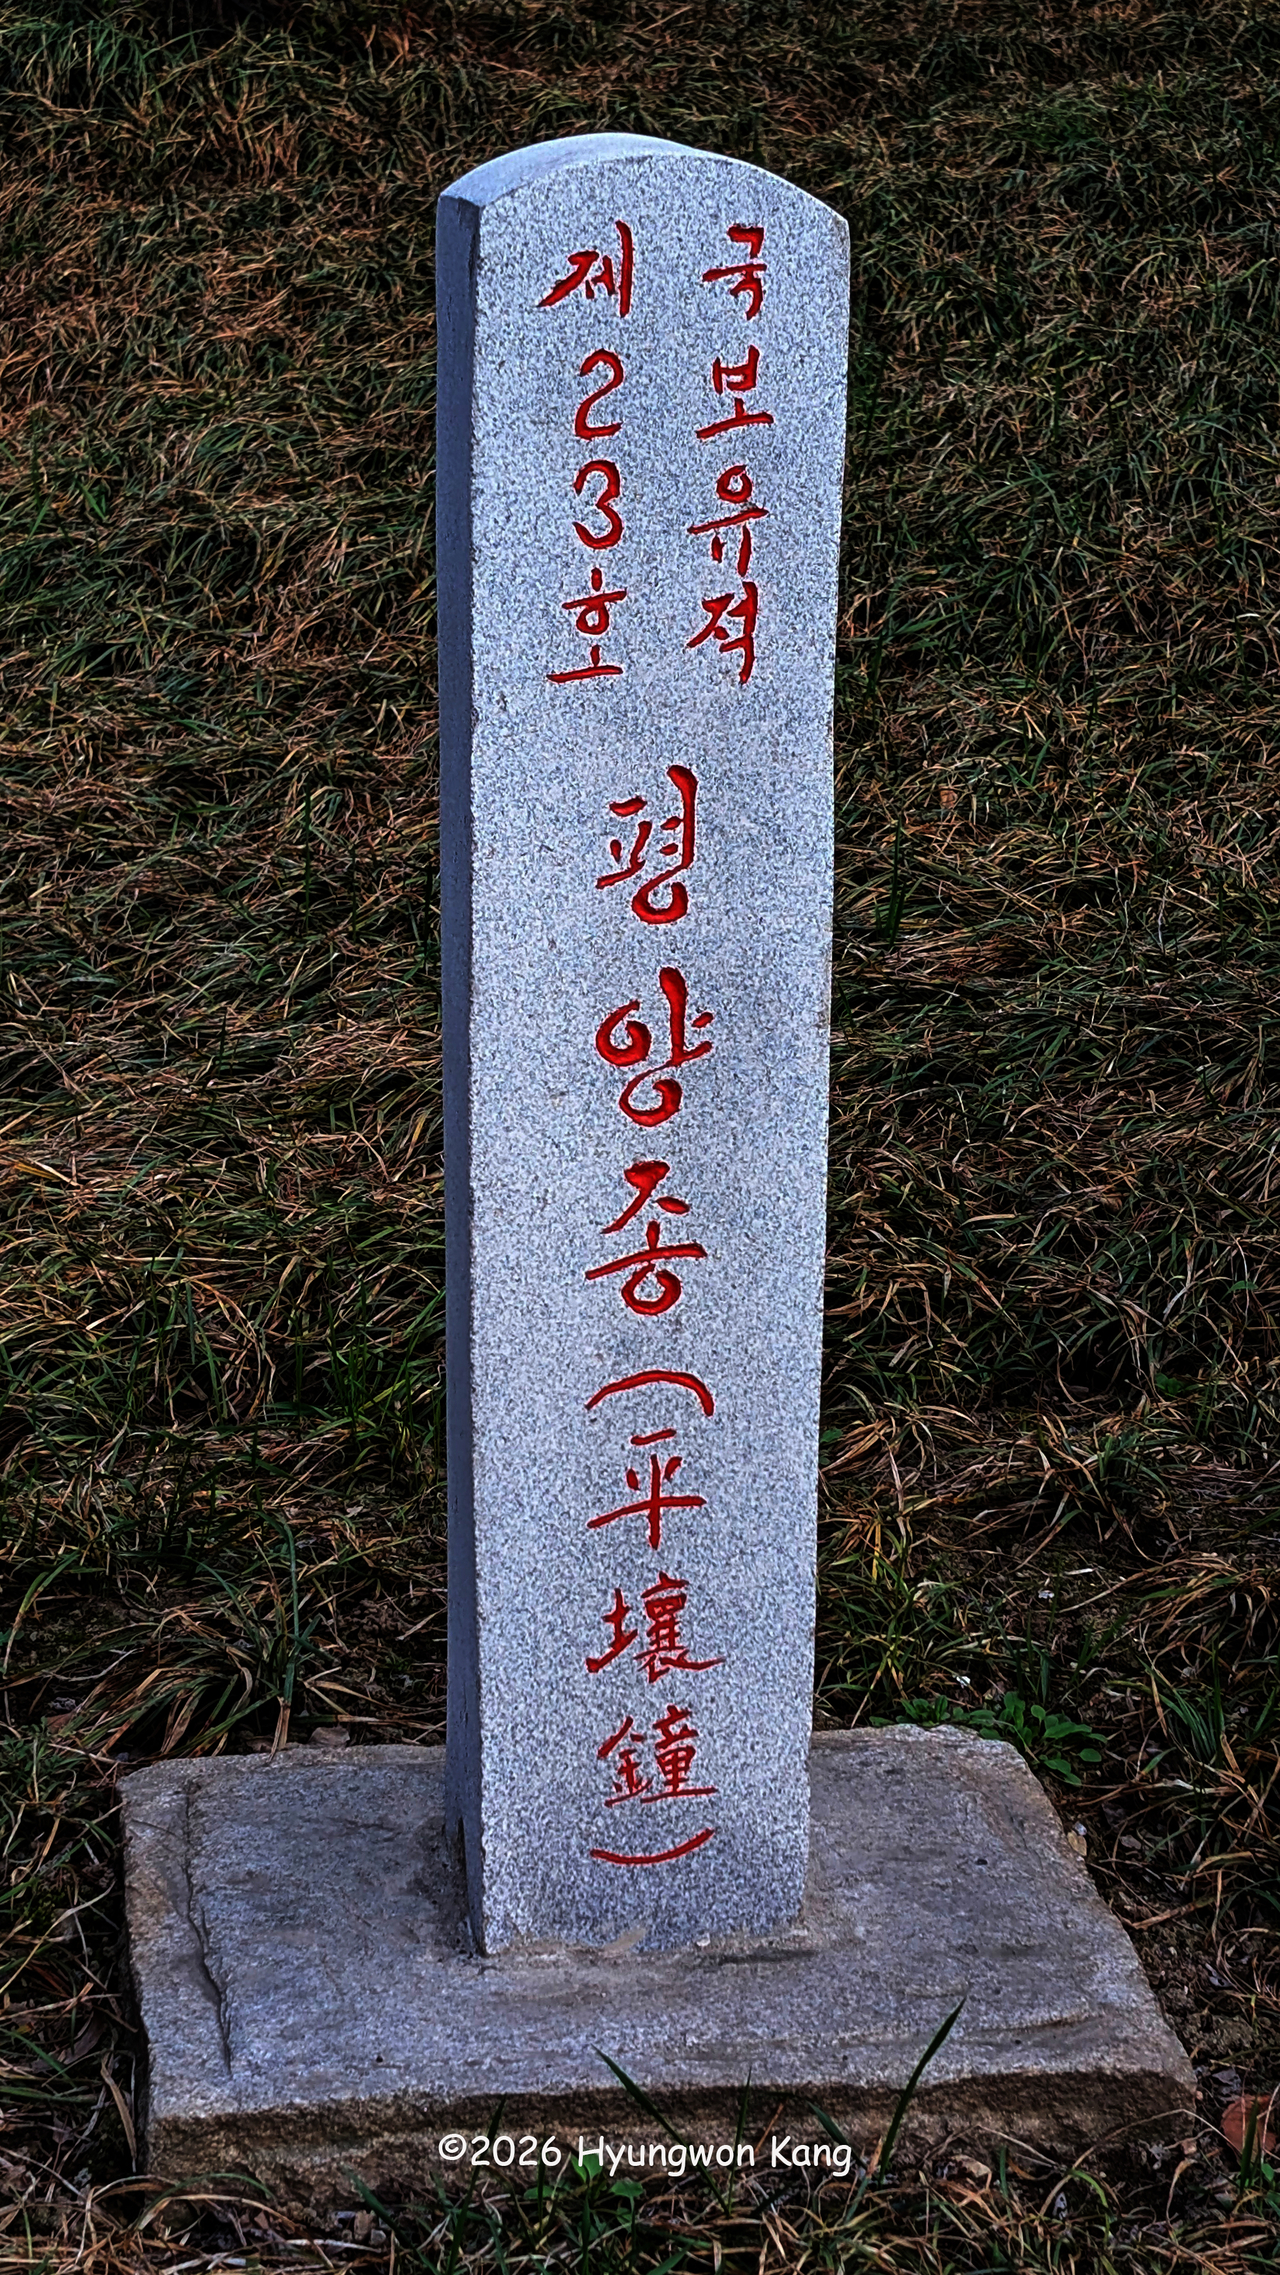 국보유적
제23호
평양종(平壤鐘)
©2026 Hyungwon Kang